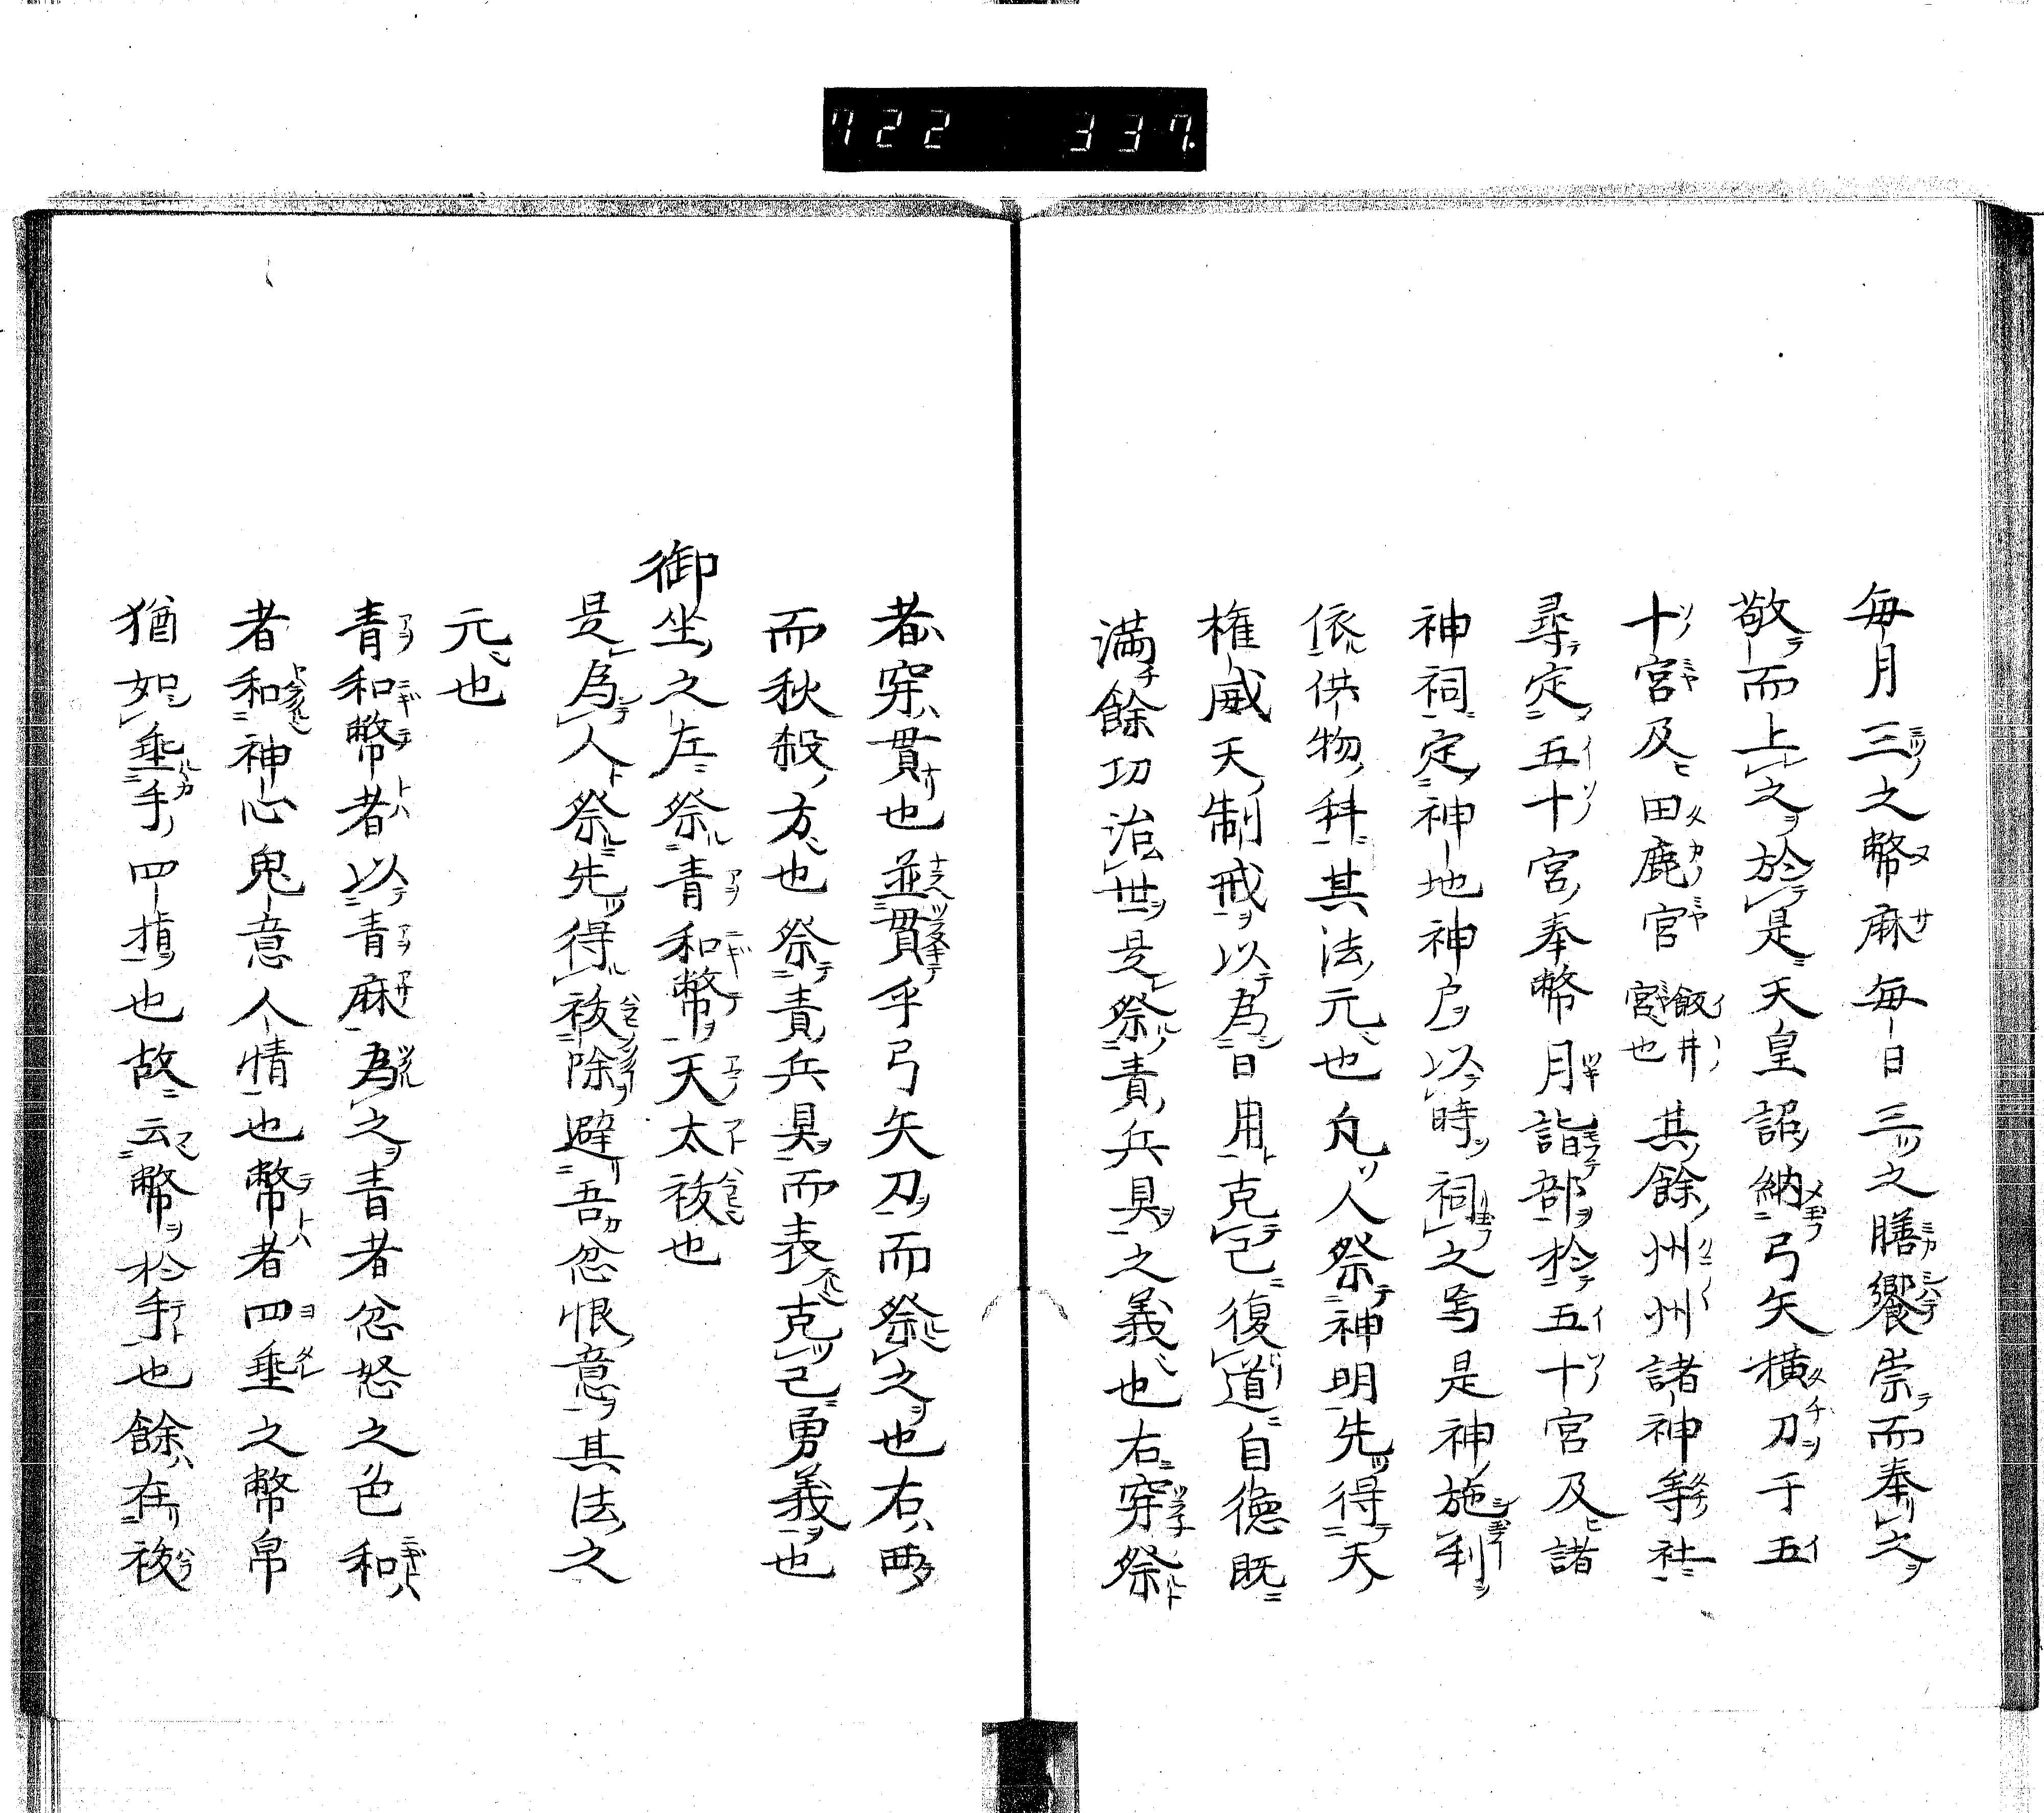 722 337.
毎月三之幣麻毎日三之膳饗崇而奉之
敬而上之於是天皇詔納弓矢横刀于五
十宮及田鹿宮飯井宮也其餘州州諸神等社
尋定五十宮奉幣月詣部於五十宮及諸
神祠定神地神戸以時祠之焉是神施利
依供物科其法元也凡人祭神明先得天
権威天制戒以為日用克己復道自徳既
満餘功治世是祭責兵具之義也右穿祭
者穿貫也並貫乎弓矢刀而祭之也右西
而秋殺方也祭責兵具而表克己勇義也
御坐之左祭青和幣天太祓也
是為人祭先得祓除避吾忿恨意其法之
元也
青和幣者以青麻為之青者忿怒之色和
者和神心鬼意人情也幣者四垂之幣帛
猶如垂手四指也故云幣於手也餘在祓